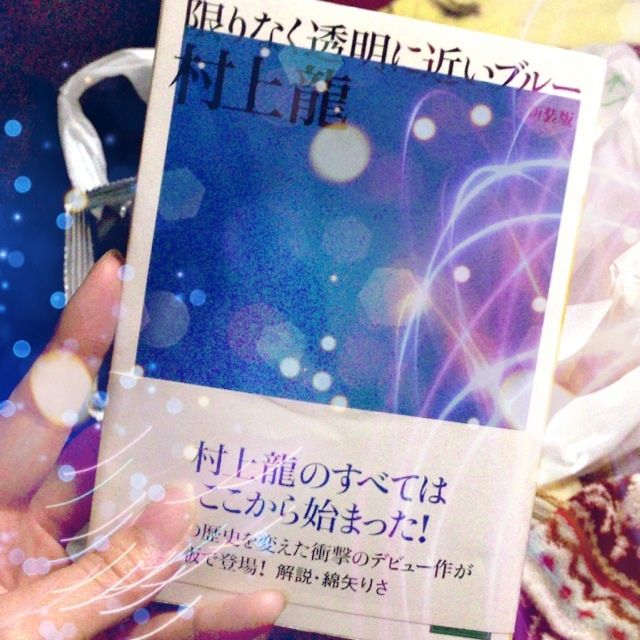 限りなく透明に近いブルー
村上龍
新装版
村上龍のすべては
ここから始まった!
の歴史を変えた衝撃のデビュー作が
版で登場! 解説・綿矢りさ